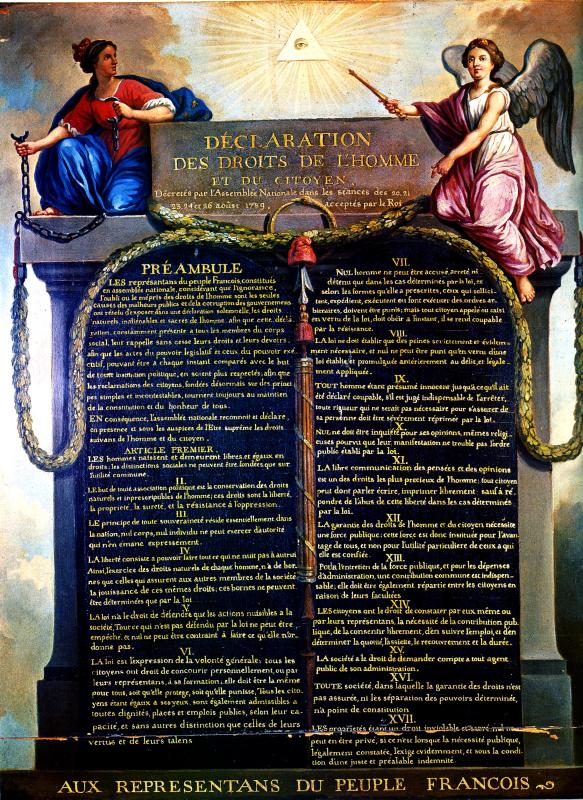 DÉCLARATION
DES DROITS DE L'HOMME
ET DU CITOYEN,
Décretés par l'Assemblée Nationale dans les séances des 20, 21
23, 24 et 26 août 1789, acceptés par le Roi
PRÉAMBULE
LES représentans du peuple François, constitués
en assemblée nationale, considérant que l'ignorance,
l'oubli ou le mépris des droits de l'homme sont les seules
causes des malheurs publics et de la corruption des gouvernemens
ont résolu d'exposer dans une déclaration solemnelle, les droits
naturels, inaliénables et sacrés de l'homme; afin que cette décla
ration, constamment présente a tous les membres du corps
social, leur rappelle sans cesse leurs droits et leurs devoirs;
afin que les actes du pouvoir législatif et ceux du pouvoir exé
cutif, pouvant être à chaque instant comparés avec le but
de toute institution politique, en soient plus respectés; afin que
les réclamations des citoyens, fondées désormais sur des princi
pes simples et incontestables, tournent toujours au maintien
de la constitution et du bonheur de tous.
EN conséquence, l'assemblée nationale reconnoit et déclare,
en présence et sous les auspices de l'Etre suprême les droits
suivans de l'homme et du citoyen.
ARTICLE PREMIER.
LES hommes naissent et demeurent libres et égaux en
droits; les distinctions sociales ne peuvent être fondées que sur
l'utilité commune.
II.
LE but de toute association politique est la conservation des droits
naturels et imprescriptibles de l'homme; ces droits sont la liberté,
la propriété, la sureté, et la résistance à l'oppression.
III.
LE principe de toute souveraineté réside essentiellement dans
la nation, nul corps, nul individu ne peut exercer d'autorité
qui n'en émane expressément.
IV.
LA liberté consiste a pouvoir faire tout ce qui ne nuit pas à autrui
Ainsi, l'exercice des droits naturels de chaque homme, n'a de bor-
nes que celles qui assurent aux autres membres de la société
la jouissance de ces mêmes droits; ces bornes ne peuvent
être déterminées que par la loi
V.
LA loi n'a le droit de défendre que les actions nuisibles à la
société. Tout ce qui n'est pas défendu par la loi ne peut être
empêché, et nul ne peut être contraint à faire ce qu'elle n'or-
donne pas.
VI.
LA loi est l'expression de la volonté générale; tous les
citoyens ont droit de concourir personnellement, ou par
leurs représentans, à sa formation; elle doit être la même
pour tous, soit qu'elle protege, soit qu'elle punisse. Tous les cito
yens étant égaux à ses yeux, sont également admissibles a
toutes dignités, places et emplois publics, selon leur ca-
pacité, et sans autres distinction que celles de leurs
vertus et de leurs talens
VII.
NUL homme ne peut être accusé, arreté ni
détenu que dans les cas déterminés par la loi, et
selon les formes qu'elle a prescrites, ceux qui sollici-
tent, expédient, exécutent ou font exécuter des ordres ar-
bitraires, doivent être punis; mais tout citoyen appelé ou saisi
en vertu de la loi, doit obéir a l'instant, il se rend coupable
par la résistance.
VIII.
LA loi ne doit établir que des peines strictement et évidem-
ment nécessaire, et nul ne peut être puni qu'en vertu d'une
loi établie et promulguée antérieurement au délit, et légale-
ment appliquée.
IX.
TOUT homme étant présumé innocent jusqu'a ce qu'il ait
été déclaré coupable, s'il est jugé indispensable de l'arrêter,
toute rigueur qui ne serait pas nécessaire pour s'assurer de
sa personne doit être sévèrement réprimée par la loi.
X.
NUL ne doit être inquiété pour ses opinions, mêmes religi-
euses pourvu que leur manifestation ne trouble pas l'ordre
public établi par la loi.
XI.
LA libre communication des pensées et des opinions
est un des droits les plus precieux de l'homme; tout citoyen
peut dont parler écrire, imprimer librement; sauf à ré-
pondre de l'abus de cette liberté dans les cas déterminés
par la loi.
XII.
LA garantie des droits de l'homme et du citoyen nécessite
une force publique; cette force est donc instituée pour l'avan-
tage de tous, et non pour l'utilité particulière de ceux a qui
elle est confiée.
XIII.
POUR l'entretien de la force publique, et pour les dépenses
d'administration, une contribution commune est indispen-
sable; elle doit être également répartie entre les citoyens en
raison de leurs facultées
XIV.
LES citoyens ont le droit de constater par eux même ou
par leurs représentans, la nécessité de la contribution pub-
lique, de la consentir librement, d'en suivre l'emploi, et d'en
déterminer la quotité, l'assiete, le recouvrement et la durée.
XV.
LA société a le droit de demander compte a tout agent
public de son administration.
XVI.
TOUTE société, dans laquelle la garantie des droits n'est
pas assurée, ni la séparation des pouvoirs déterminée,
n'a point de constitution
XVII.
LES propriétés étant un droit inviolable et sacré, nul ne
peut en être privé, si ce n'est lorsque la nécessité publique,
légalement constatée, l'exige evidemment, et sous la condi-
tion d'une juste et préalable indemnité.
AUX REPRESENTANS DU PEUPLE FRANCOIS